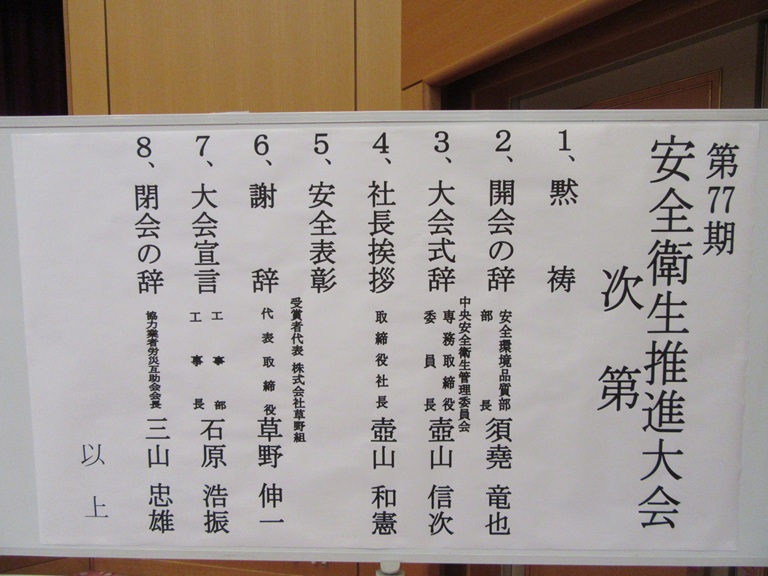 第77期
安全衛生推進大会
次第
1、黙祷
2、開会の辞 安全環境品質部
部長 須堯 竜也
3、大会式辞 中央安全衛生管理委員会
専務取締役
委員長 壺山 信次
4、社長挨拶 取締役社長 壺山 和憲
5、安全表彰
6、謝辞 受賞者代表 株式会社草野組
代表取締役 草野 伸一
7、大会宣言 工事部
工事長 石原 浩振
8、閉会の辞 協力業者労災互助会会長 三山 忠雄
以上